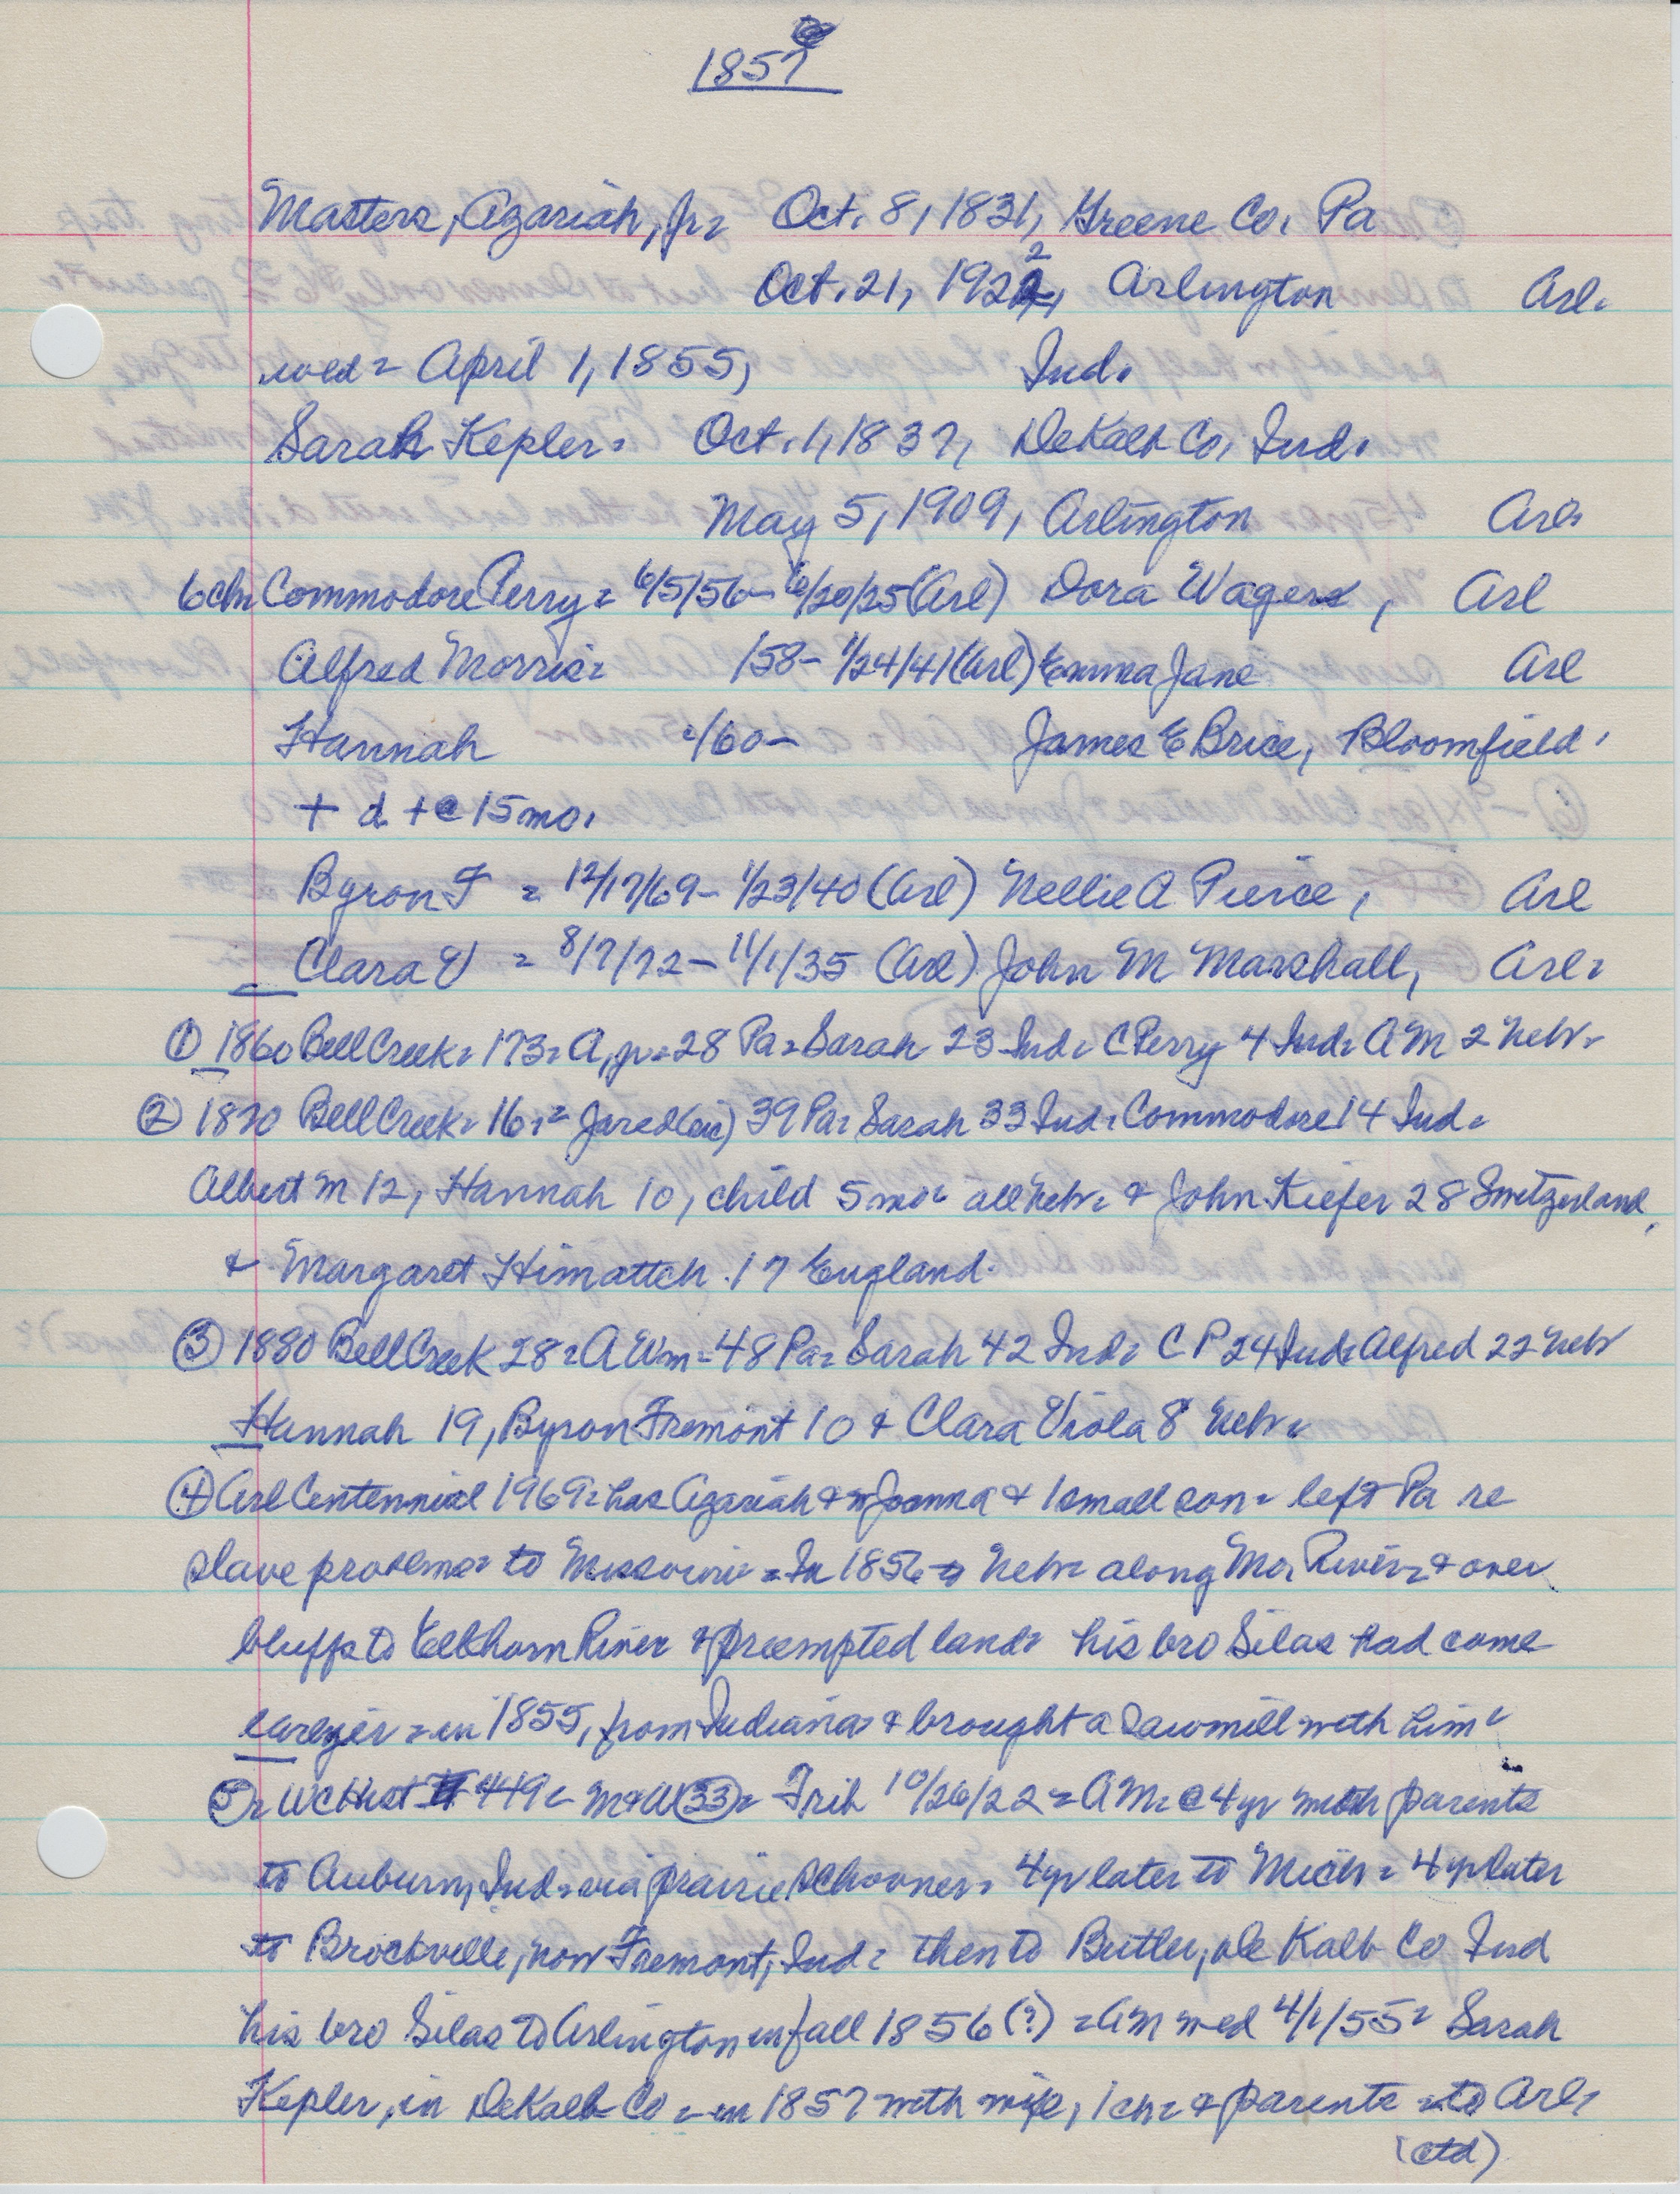 1857
Masters, Azariah, Jr = Oct. 8, 1831, Greene Co, Pa
Oct. 21, 1922, Arlington Arl.
wed = April 1, 1855, Ind.
Sarah Kepler = Oct. 1, 1837, DeKalb Co, Ind.
May 5, 1909, Arlington Arl.
6 ch = Commodore Perry = 6/5/56 - 6/20/25 (Arl) Dora Wagers, Arl
Alfred Morris = /58 - 1/24/41 (Arl) Emma Jane Arl
Hannah /60 - James E Brice, Bloomfield.
+ d + @ 15 mo.
Byron F = 12/17/69 - 1/23/40 (Arl) Nellie A Pierce, Arl
Clara V = 8/7/72 - 11/1/35 (Arl) John M Marshall, Arl =
① 1860 Bell Creek = 173 = A, Jr = 28 Pa = Sarah 23 Ind = C Perry 4 Ind = A M 2 Nebr =
② 1870 Bell Creek = 16 = Jared (sic) 39 Pa = Sarah 33 Ind = Commodore 14 Ind =
Albert M 12, Hannah 10, child 5 mo = all Nebr = & John Kiefer 28 Switzerland,
& Margaret 17 England.
③ 1880 Bell Creek 28 = A Wm - 48 Pa = Sarah 42 Ind = C P 24 Ind = Alfred 22 Nebr
Hannah 19, Byron Fremont 10 & Clara Viola 8 Nebr =
④ Arl Centennial 1969 = has Azariah & w Joanna & 1 small son = left Pa re
slave problems = to Missouri = In 1856 → Nebr = along Mo. River = & over
bluffs to Elkhorn River & preempted land = his bro Silas had come
earlier = in 1855, from Indiana = & brought a sawmill with him =
⑤ = WC Hist 449 = M&W (33) = Trib 10/26/22 = AM = @ 4 yr with parents
to Auburn, Ind = via prairie schooner = 4 yr later to Mich = 4 yr later
to Brockville, now Fremont, Ind = then to Butler, De Kalb Co Ind
his bro Silas to Arlington in fall 1856 (?) = AM wed 4/1/55 = Sarah
Kepler, in DeKalb Co = in 1857 with wife, 1 ch = & parents = to Arl =
(ctd)